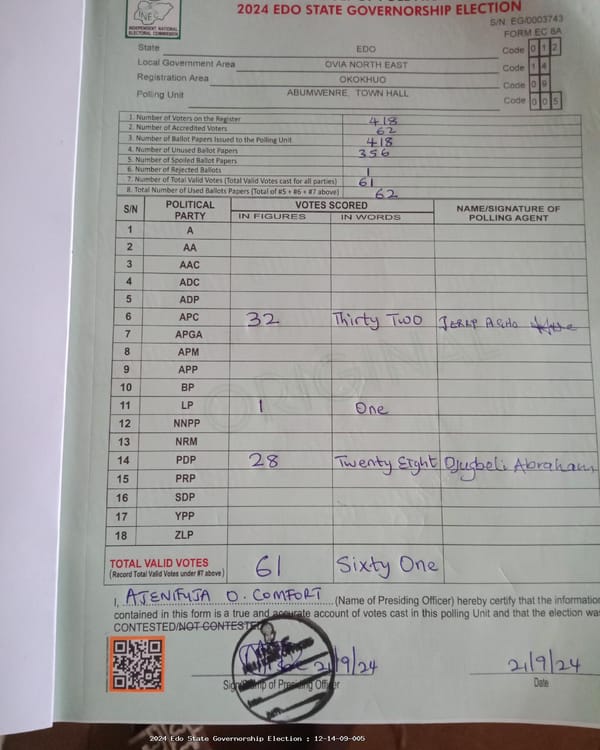 2024 EDO STATE GOVERNORSHIP ELECTION
INEC
INDEPENDENT NATIONAL ELECTORAL COMMISSION
S/N. EG/0003743
FORM EC 8A
State EDO Code 0 1 2
Local Government Area OVIA NORTH EAST Code 1 4
Registration Area OKOKHUO Code 0 9
Polling Unit ABUMWENRE TOWN HALL Code 0 0 5
1. Number of Voters on the Register 418
2. Number of Accredited Voters 62
3. Number of Ballot Papers Issued to the Polling Unit 418
4. Number of Unused Ballot Papers 356
5. Number of Spoiled Ballot Papers
6. Number of Rejected Ballots 1
7. Number of Total Valid Votes (Total Valid Votes cast for all parties) 61
8. Total Number of Used Ballots Papers (Total of #5 + #6 + #7 above) 62
S/N POLITICAL PARTY VOTES SCORED NAME/SIGNATURE OF POLLING AGENT
IN FIGURES IN WORDS
1 A
2 AA
3 AAC
4 ADC
5 ADP
6 APC 32 Thirty Two
7 APGA
8 APM
9 APP
10 BP
11 LP 1 One
12 NNPP
13 NRM
14 PDP 28 Twenty Eight Abraham
15 PRP
16 SDP
17 YPP
18 ZLP
ORIGINAL
TOTAL VALID VOTES 61 Sixty One
(Record Total Valid Votes under #7 above)
I, AJENIFUJA O. COMFORT (Name of Presiding Officer) hereby certify that the information
contained in this form is a true and accurate account of votes cast in this polling Unit and that the election was
CONTESTED/NOT CONTESTED
21/9/24 21/9/24
Sign/Stamp of Presiding Officer Date
2024 Edo State Governorship Election : 12-14-09-005